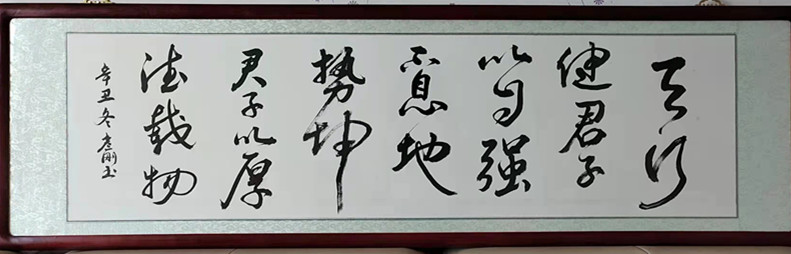 天行
健君子
以自强
不息地
势坤
君子以厚
德载物
辛丑冬彦刚书